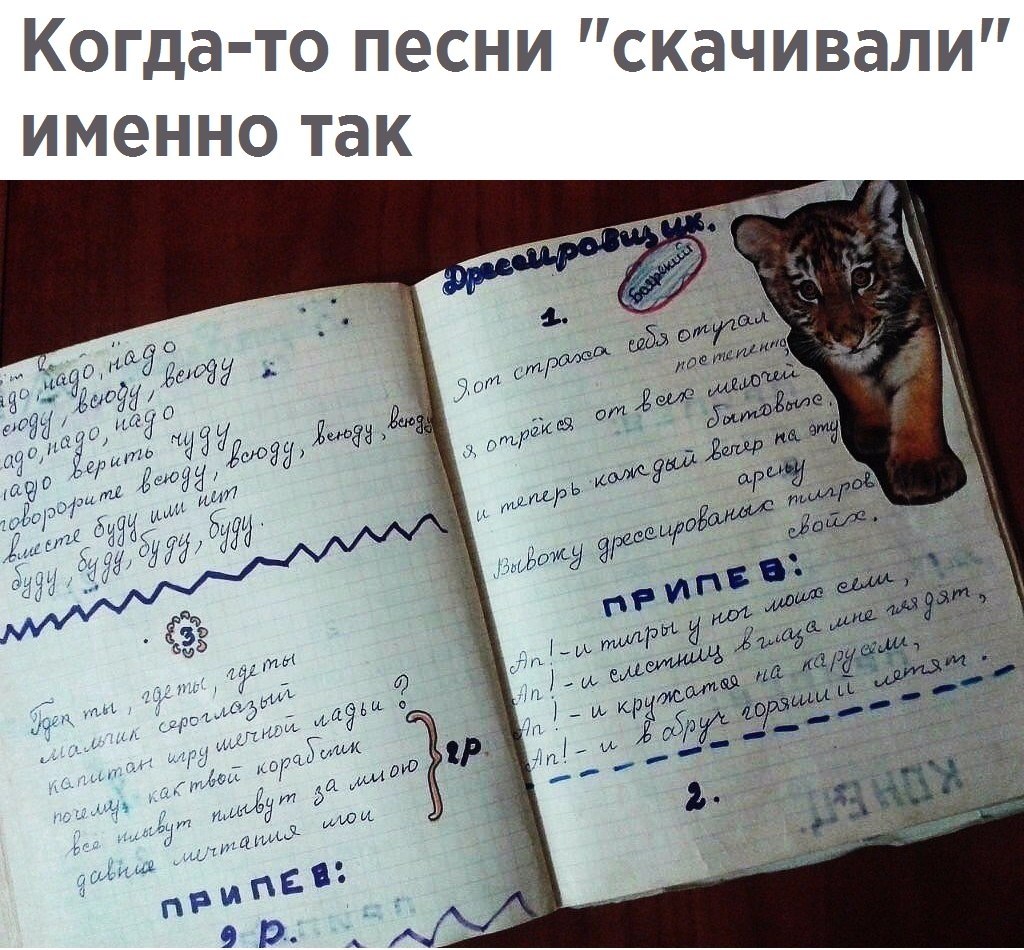 Когда-то песни "скачивали"
именно так
надо, надо
всюду, всюду
надо, надо, над
надо верить чуду
говорорите всюду, всюду, всюду, всюду
вместе буду или нет
буду, буду, буду, буду.
3
Где ты, где ты, где ты
мальчик сероглазый
капитан игрушечной ладьи ?
почему, как твой кораблик
все плывут плывут за мною
давние мечтания мои
2р.
ПРИПЕВ:
2 р.
Дрессировщик.
Боярский
1.
Я от страха себя отучал
постепенно,
я отрёкся от всех мелочей
бытовых.
и теперь каждый вечер на эту
арену
Вывожу дрессированых тигров
своих.
ПРИПЕВ:
Ап! - и тигры у ног моих сели,
Ап! - и слестниц в глаза мне глядят,
Ап! - и кружатся на карусели,
Ап! - и в обруч горящий летят.
2.
КОНЕЦ.